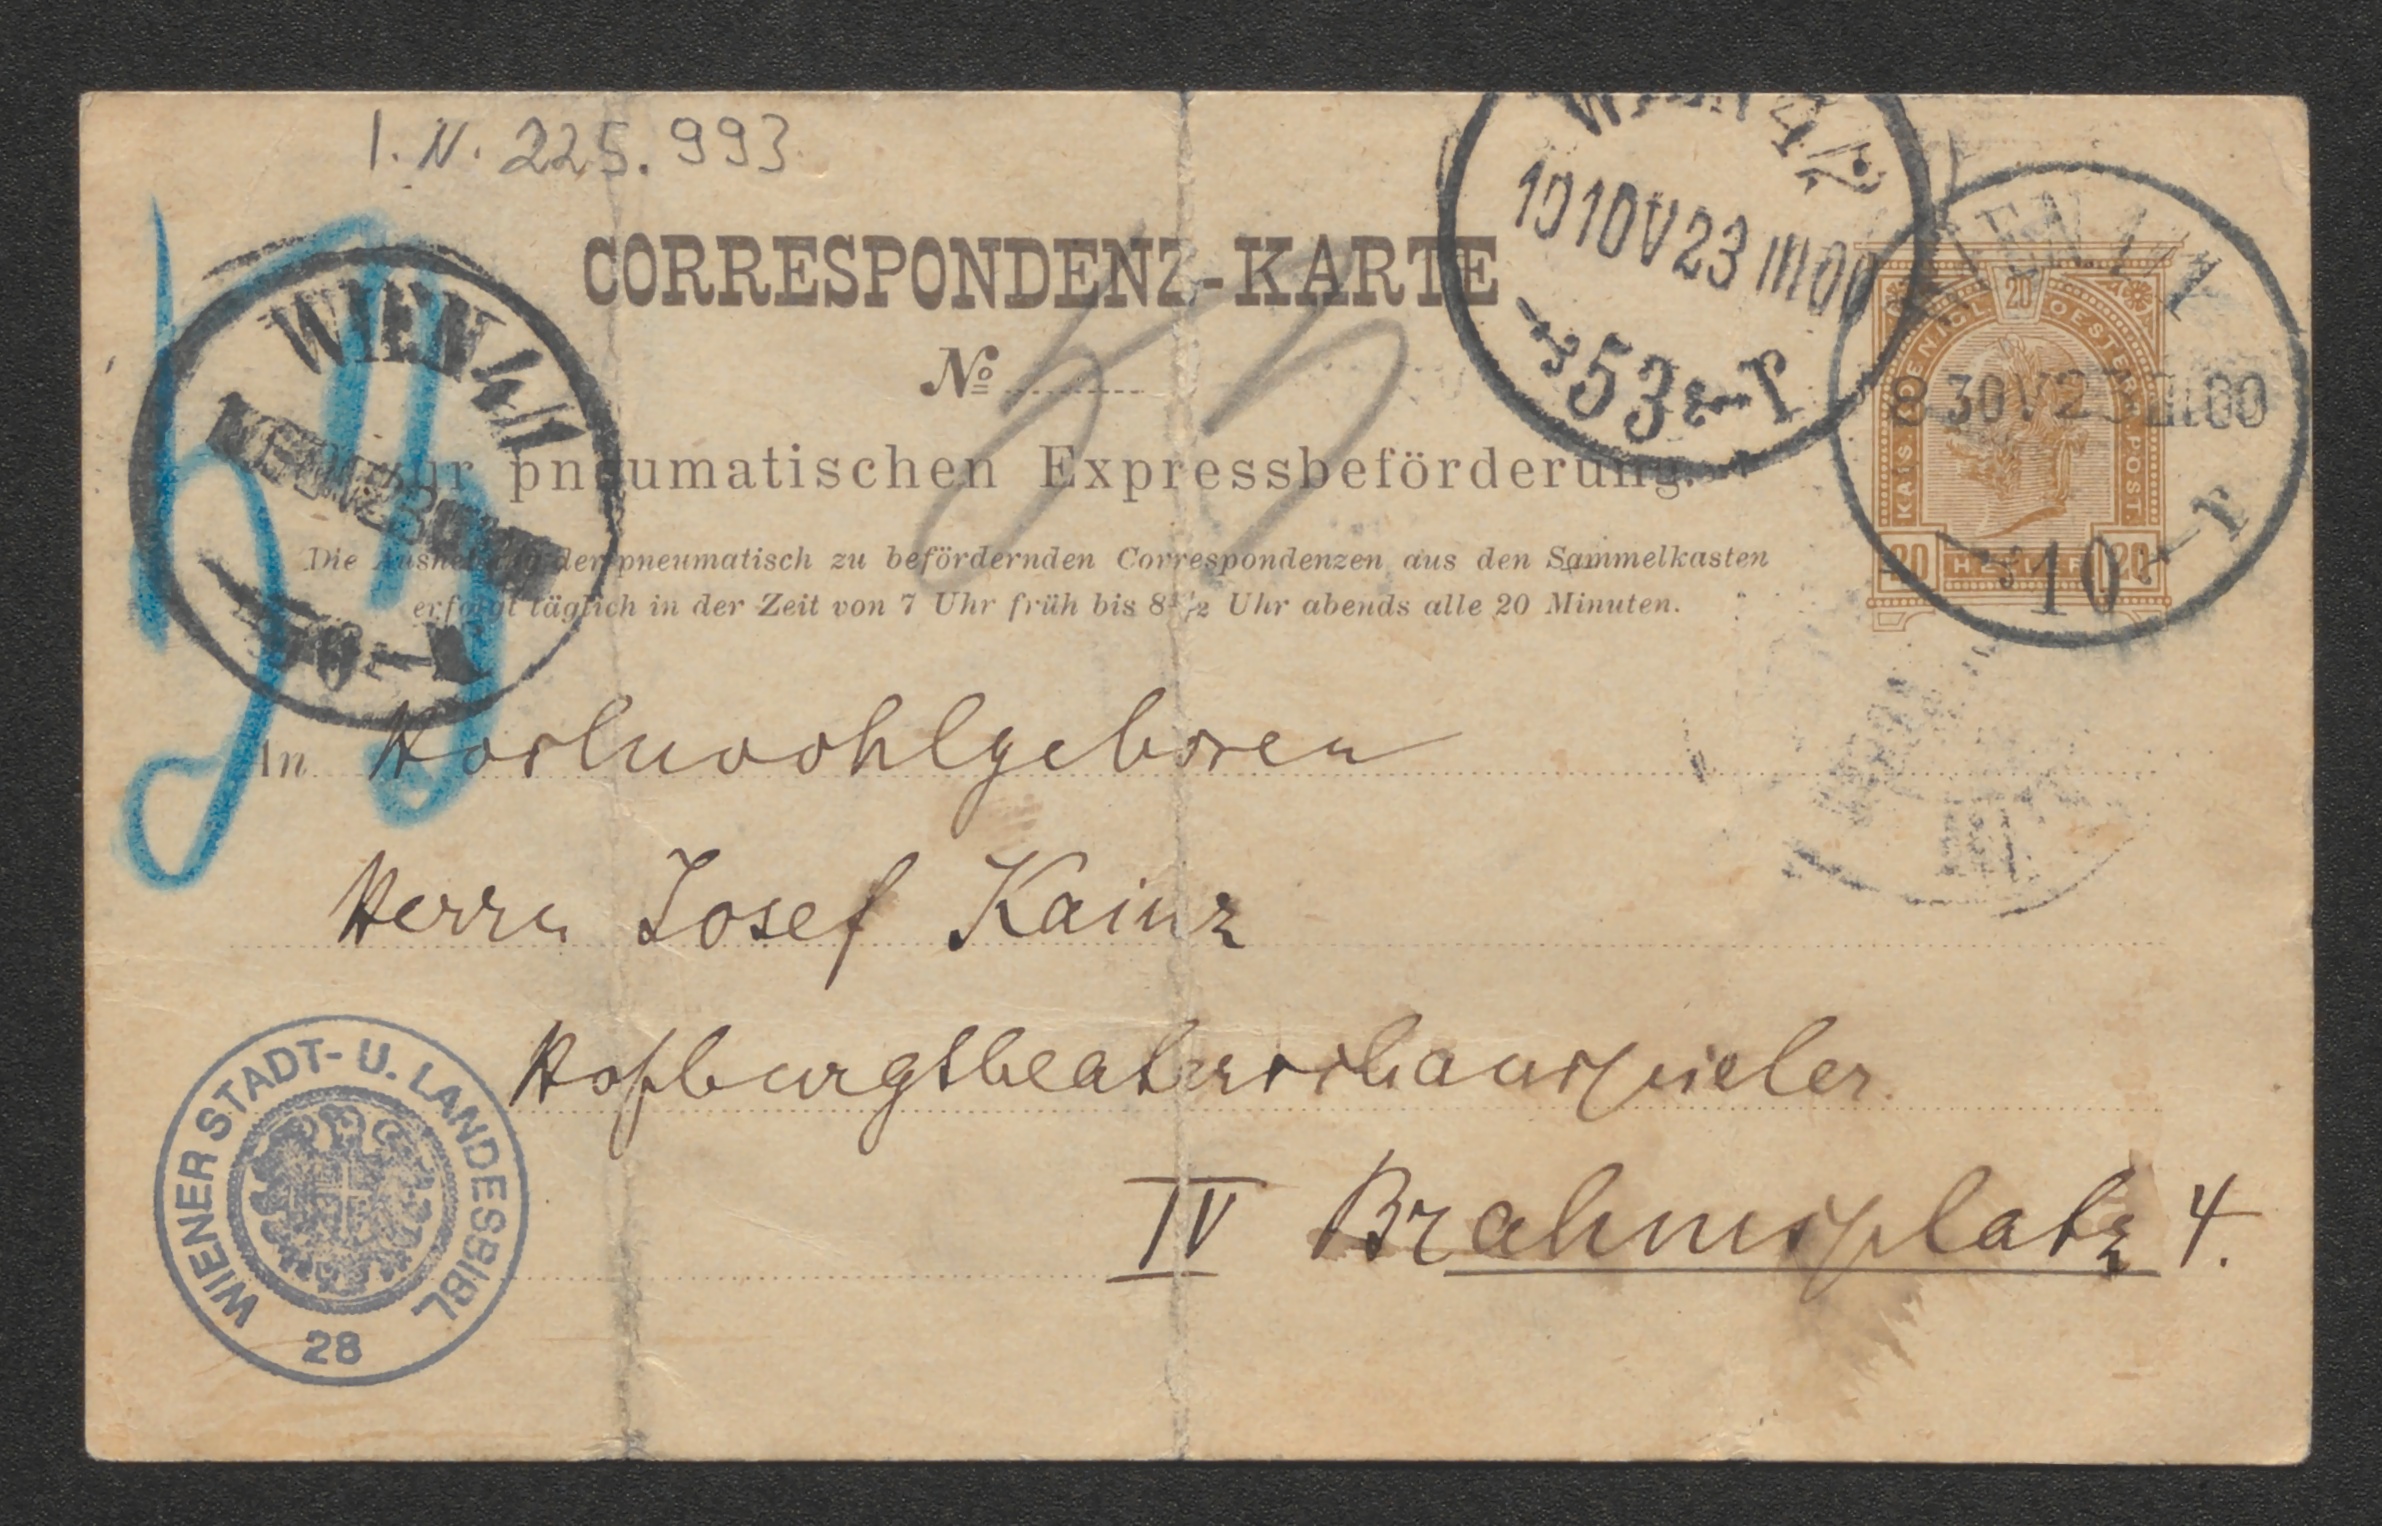 I. N. 225.993
CORRESPONDENZ-KARTE
No
53
zur pneumatischen Expressbeförderung.
Die Aushebung der pneumatisch zu befördernden Correspondenzen aus den Sammelkasten
erfolgt täglich in der Zeit von 7 Uhr früh bis 8 1/2 Uhr abends alle 20 Minuten.
WIEN 4/1
WIEN 4/
10 10V 23 III 00
53
WIEN 4/1
8 30V 23 III 00
10
KAIS. KOENIGL. OESTERR. POST.
20
20 HELLER 20
In Hochwohlgeboren
Herrn Josef Kainz
Hofburgtheaterschauspieler
IV Brahmsplatz 4.
WIENER STADT- U. LANDESBIBL
28